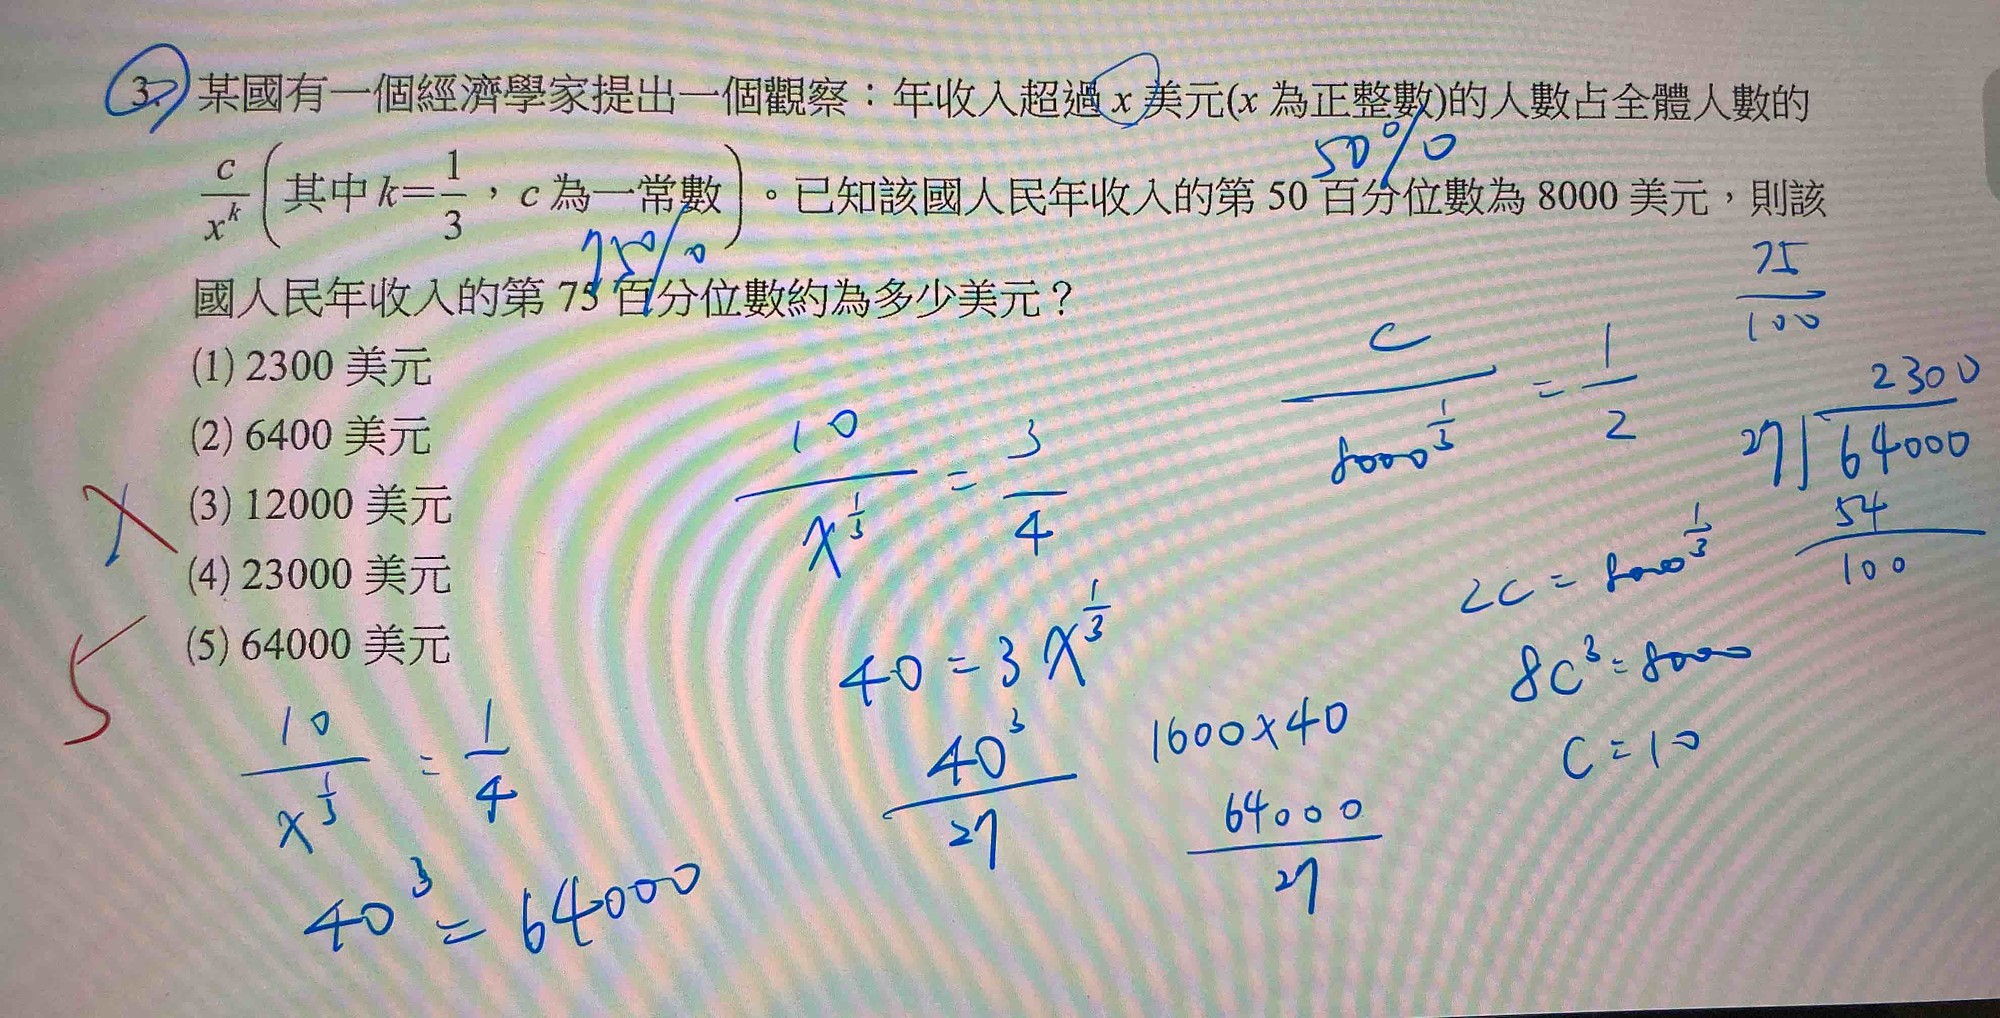 3. 某國有一個經濟學家提出一個觀察：年收入超過 x 美元(x 為正整數)的人數占全體人數的
50%
c/x^k (其中 k=1/3，c 為一常數)。已知該國人民年收入的第 50 百分位數為 8000 美元，則該
75%
國人民年收入的第 75 百分位數約為多少美元？
(1) 2300 美元
(2) 6400 美元
(3) 12000 美元
(4) 23000 美元
(5) 64000 美元
5
10/x^(1/3) = 1/4
40^3 = 64000
10/x^(1/3) = 3/4
40 = 3x^(1/3)
40^3/27
1600×40
64000/27
c/8000^(1/3) = 1/2
2c = 8000^(1/3)
8c^3 = 8000
c = 10
75/100
2300
27)64000
54
100